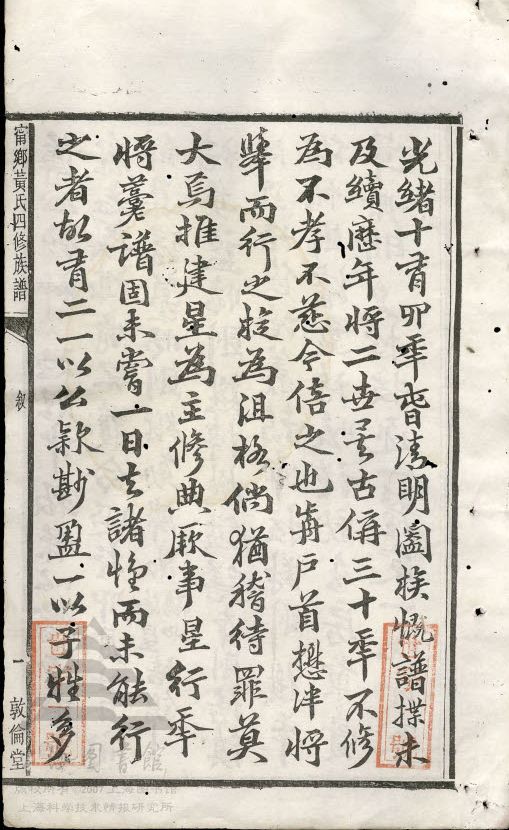 光緒十有四年旾清明闔族慨譜牒未
及續歷年將二世矣古偁三十年不修
為不孝不慈今倍之也歬戶首懋泮將
舉而行之旋為沮格倘猶稽待罪莫
大焉推建星為主修典厥事星行年
將耋譜固未嘗一日去諸懷而未能行
之者故有二一以公款尠盈一以子姓多
甯鄉黃氏四修族譜
叙
一
敦倫堂
圖書館
版权所有 ©2007 上海图书馆
上海科学技术情报研究所